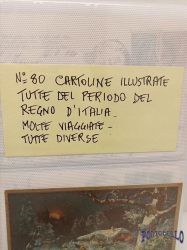 N° 80 CARTOLINE ILLUSTRATE
TUTTE DEL PERIODO DEL
REGNO D'ITALIA.
MOLTE VIAGGIATE -
TUTTE DIVERSE